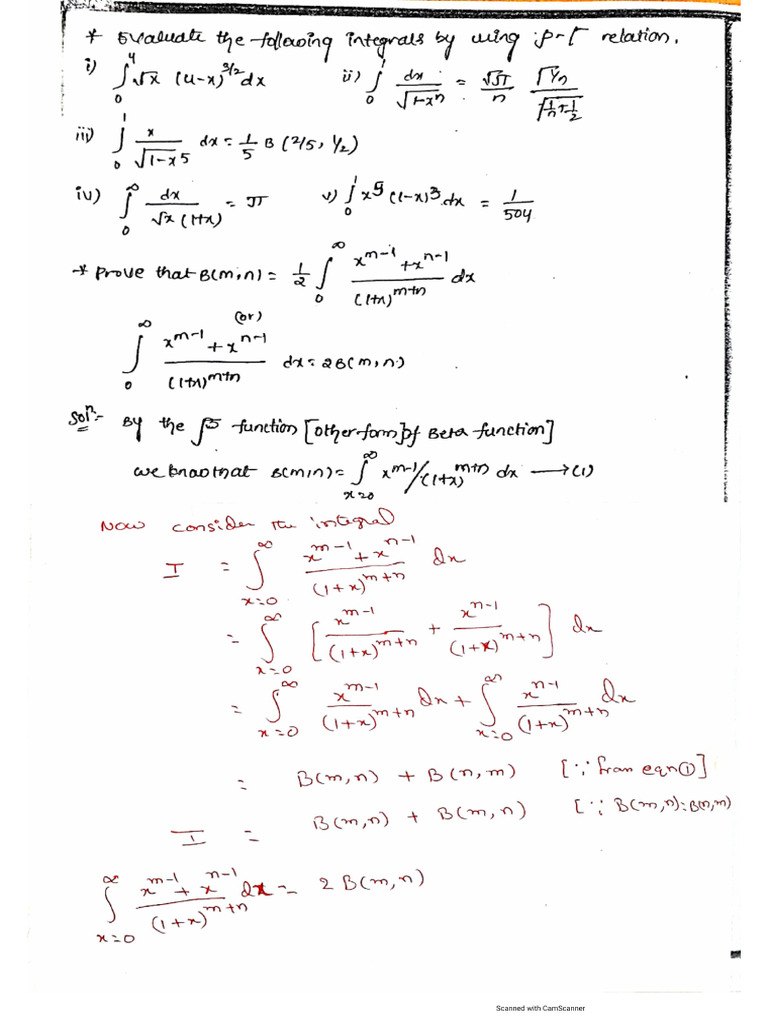 * Evaluate the following integrals by using β-Γ relation.
i) ∫₀⁴ √x (4-x)^{3/2} dx ii) ∫₀¹ dx/√(1-x^n) = √π/n Γ(1/n)/Γ(1/n+1/2)
iii) ∫₀¹ x/√(1-x^5) dx = 1/5 B(2/5, 1/2)
iv) ∫₀^∞ dx/(√x (1+x)) = π v) ∫₀¹ x^5 (1-x)^3 dx = 1/504
* Prove that B(m,n) = 1/2 ∫₀^∞ (x^{m-1} + x^{n-1})/(1+x)^{m+n} dx
(or)
∫₀^∞ (x^{m-1} + x^{n-1})/(1+x)^{m+n} dx = 2B(m,n)
Solⁿ:- By the β function [other form of Beta function]
we know that B(m,n) = ∫_{x=0}^∞ x^{m-1}/(1+x)^{m+n} dx ⟶ (1)
Now consider the integral
I = ∫_{x=0}^∞ (x^{m-1} + x^{n-1})/(1+x)^{m+n} dx
= ∫_{x=0}^∞ [x^{m-1}/(1+x)^{m+n} + x^{n-1}/(1+x)^{m+n}] dx
= ∫_{x=0}^∞ x^{m-1}/(1+x)^{m+n} dx + ∫_{x=0}^∞ x^{n-1}/(1+x)^{m+n} dx
= B(m,n) + B(n,m) [∵ from eqn ①]
I = B(m,n) + B(m,n) [∵ B(m,n) = B(n,m)]
∫_{x=0}^∞ (x^{m-1} + x^{n-1})/(1+x)^{m+n} dx = 2B(m,n)
Scanned with CamScanner